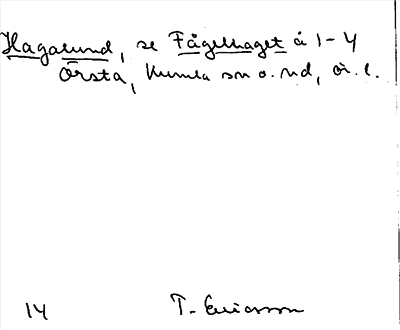 Hagalund, se Fågelhaget å 1-4
Örsta, Kumla sn o. hd, ör. l.
14 T. Ericsson